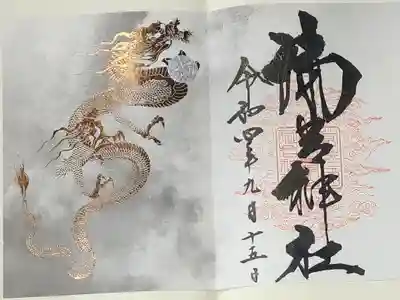 神社
令和四年九月十五日